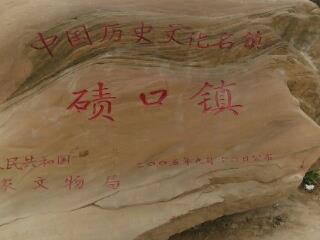 中国历史文化名镇
碛口镇
人民共和国
家文物局
二〇〇五年九月十六日公布